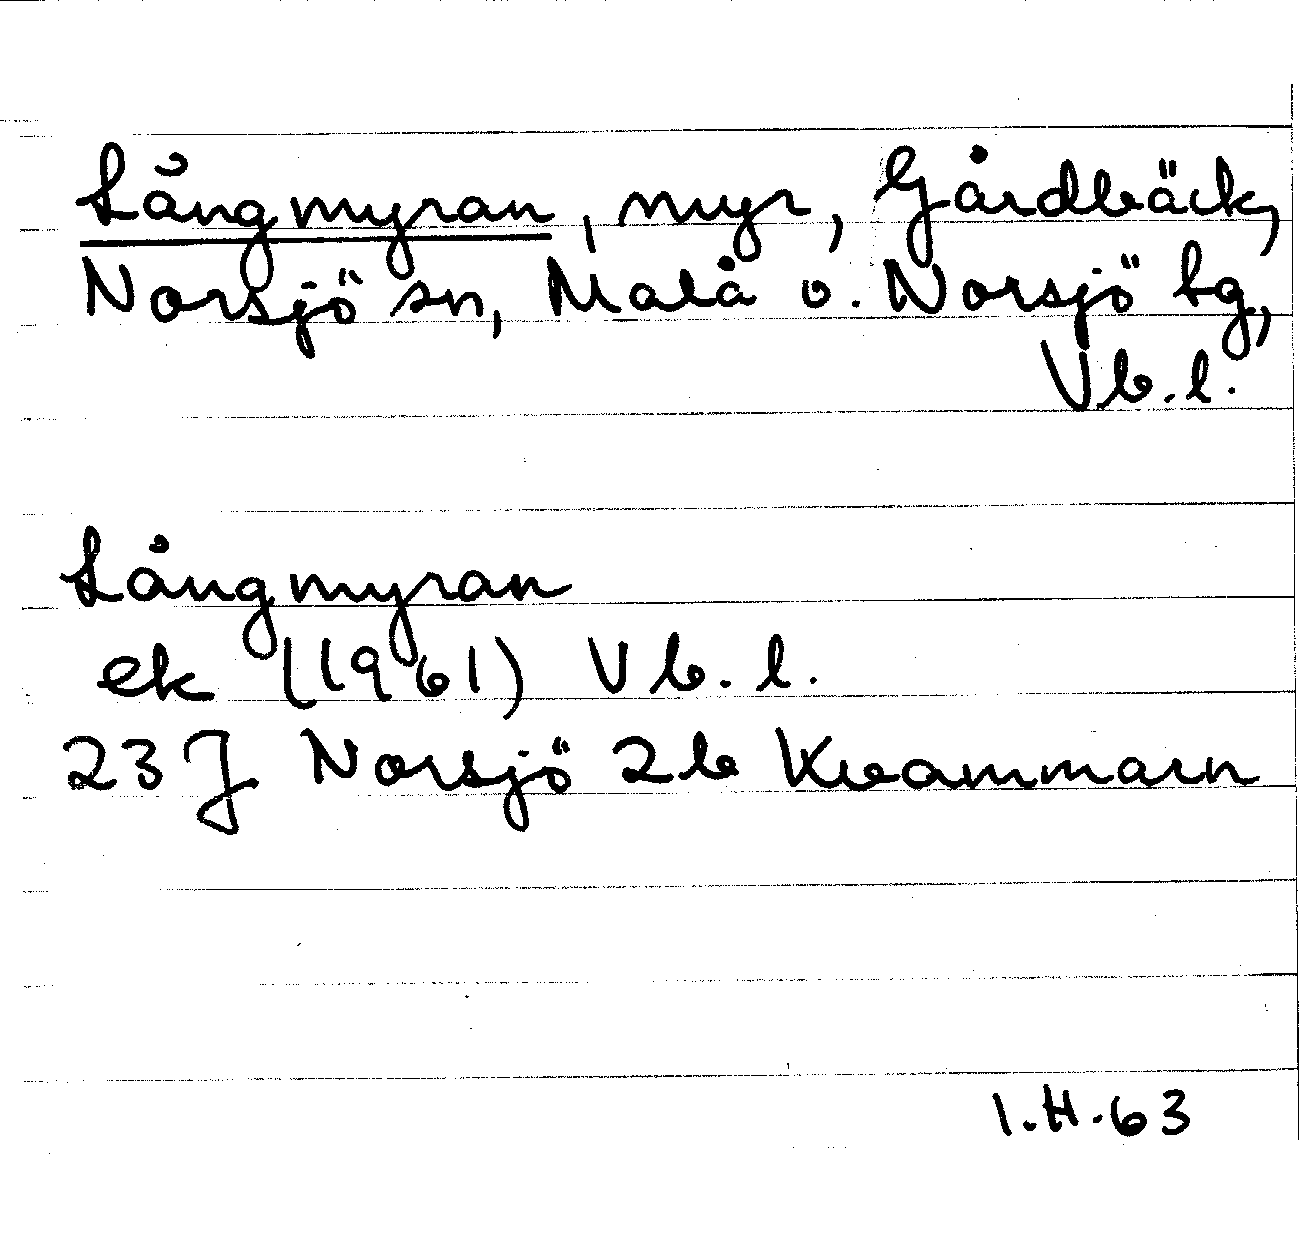 Långmyran, myr, Gårdbäck,
Norsjö sn, Malå o. Norsjö tg,
Vb.l.
Långmyran
ek (1961) Vb.l.
23 J Norsjö 2b Kvammarn
I.H.63